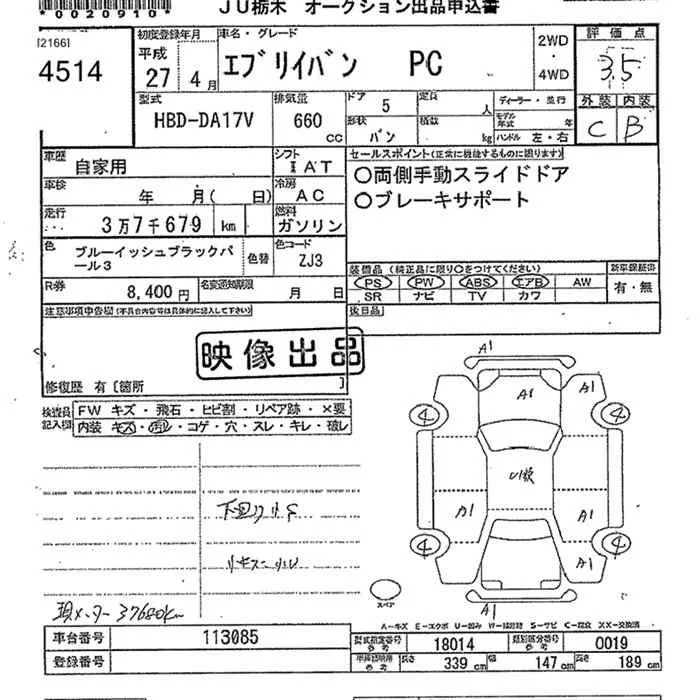 *0020910*
JU栃木 オークション出品申込書
(21661
4514
初度登録年月
平成
27 4月
車名・グレード
エブリイバン PC
2WD
・
4WD
評価点
3.5
外装 内装
C B
型式
HBD-DA17V
排気量
660
cc
ドア 5
定員 人
形状 バン
積載 kg
ディーラー・並行
モデル年式 年
ハンドル 左・右
車歴
自家用
シフト
I AT
車検
年 月( 日)
冷房
AC
走行
3万7千679 km
燃料
ガソリン
色
ブルーイッシュブラックパール3
色替
色コード
ZJ3
R券
8,400円
名変通知期限
月 日
セールスポイント(正常に機能するものに限ります)
○両側手動スライドドア
○ブレーキサポート
装備品(純正品に限り○をつけてください)
PS PW ABS エアB AW
SR ナビ TV カワ
新車保証書
有・無
後日品
注意事項申告欄(不具合内容等は具体的に記入して下さい)
映像出品
修復歴 有〔箇所 〕
検査員記入欄
FW キズ・飛石・ヒビ割・リペア跡・×要
内装 キズ・汚レ・コゲ・穴・スレ・キレ・破レ
下回り小S
現メーター 37680km
A1
A1
A1
A1
4
4
A1
A1
4
4
A1
A1
スペア
A-キズ E-エクボ U-凹み W-補修跡 S-サビ C-腐食 XX-交換済
車台番号 113085
登録番号
型式指定番号 参考 18014
類別区分番号 参考 0019
車検証明用 参考 長さ 339cm 幅 147cm 高さ 189cm